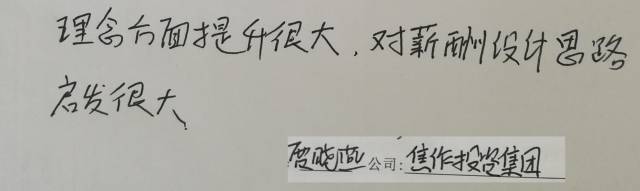 理念方面提升很大，对薪酬设计思路
启发很大
晓燕 公司：焦作投资集团